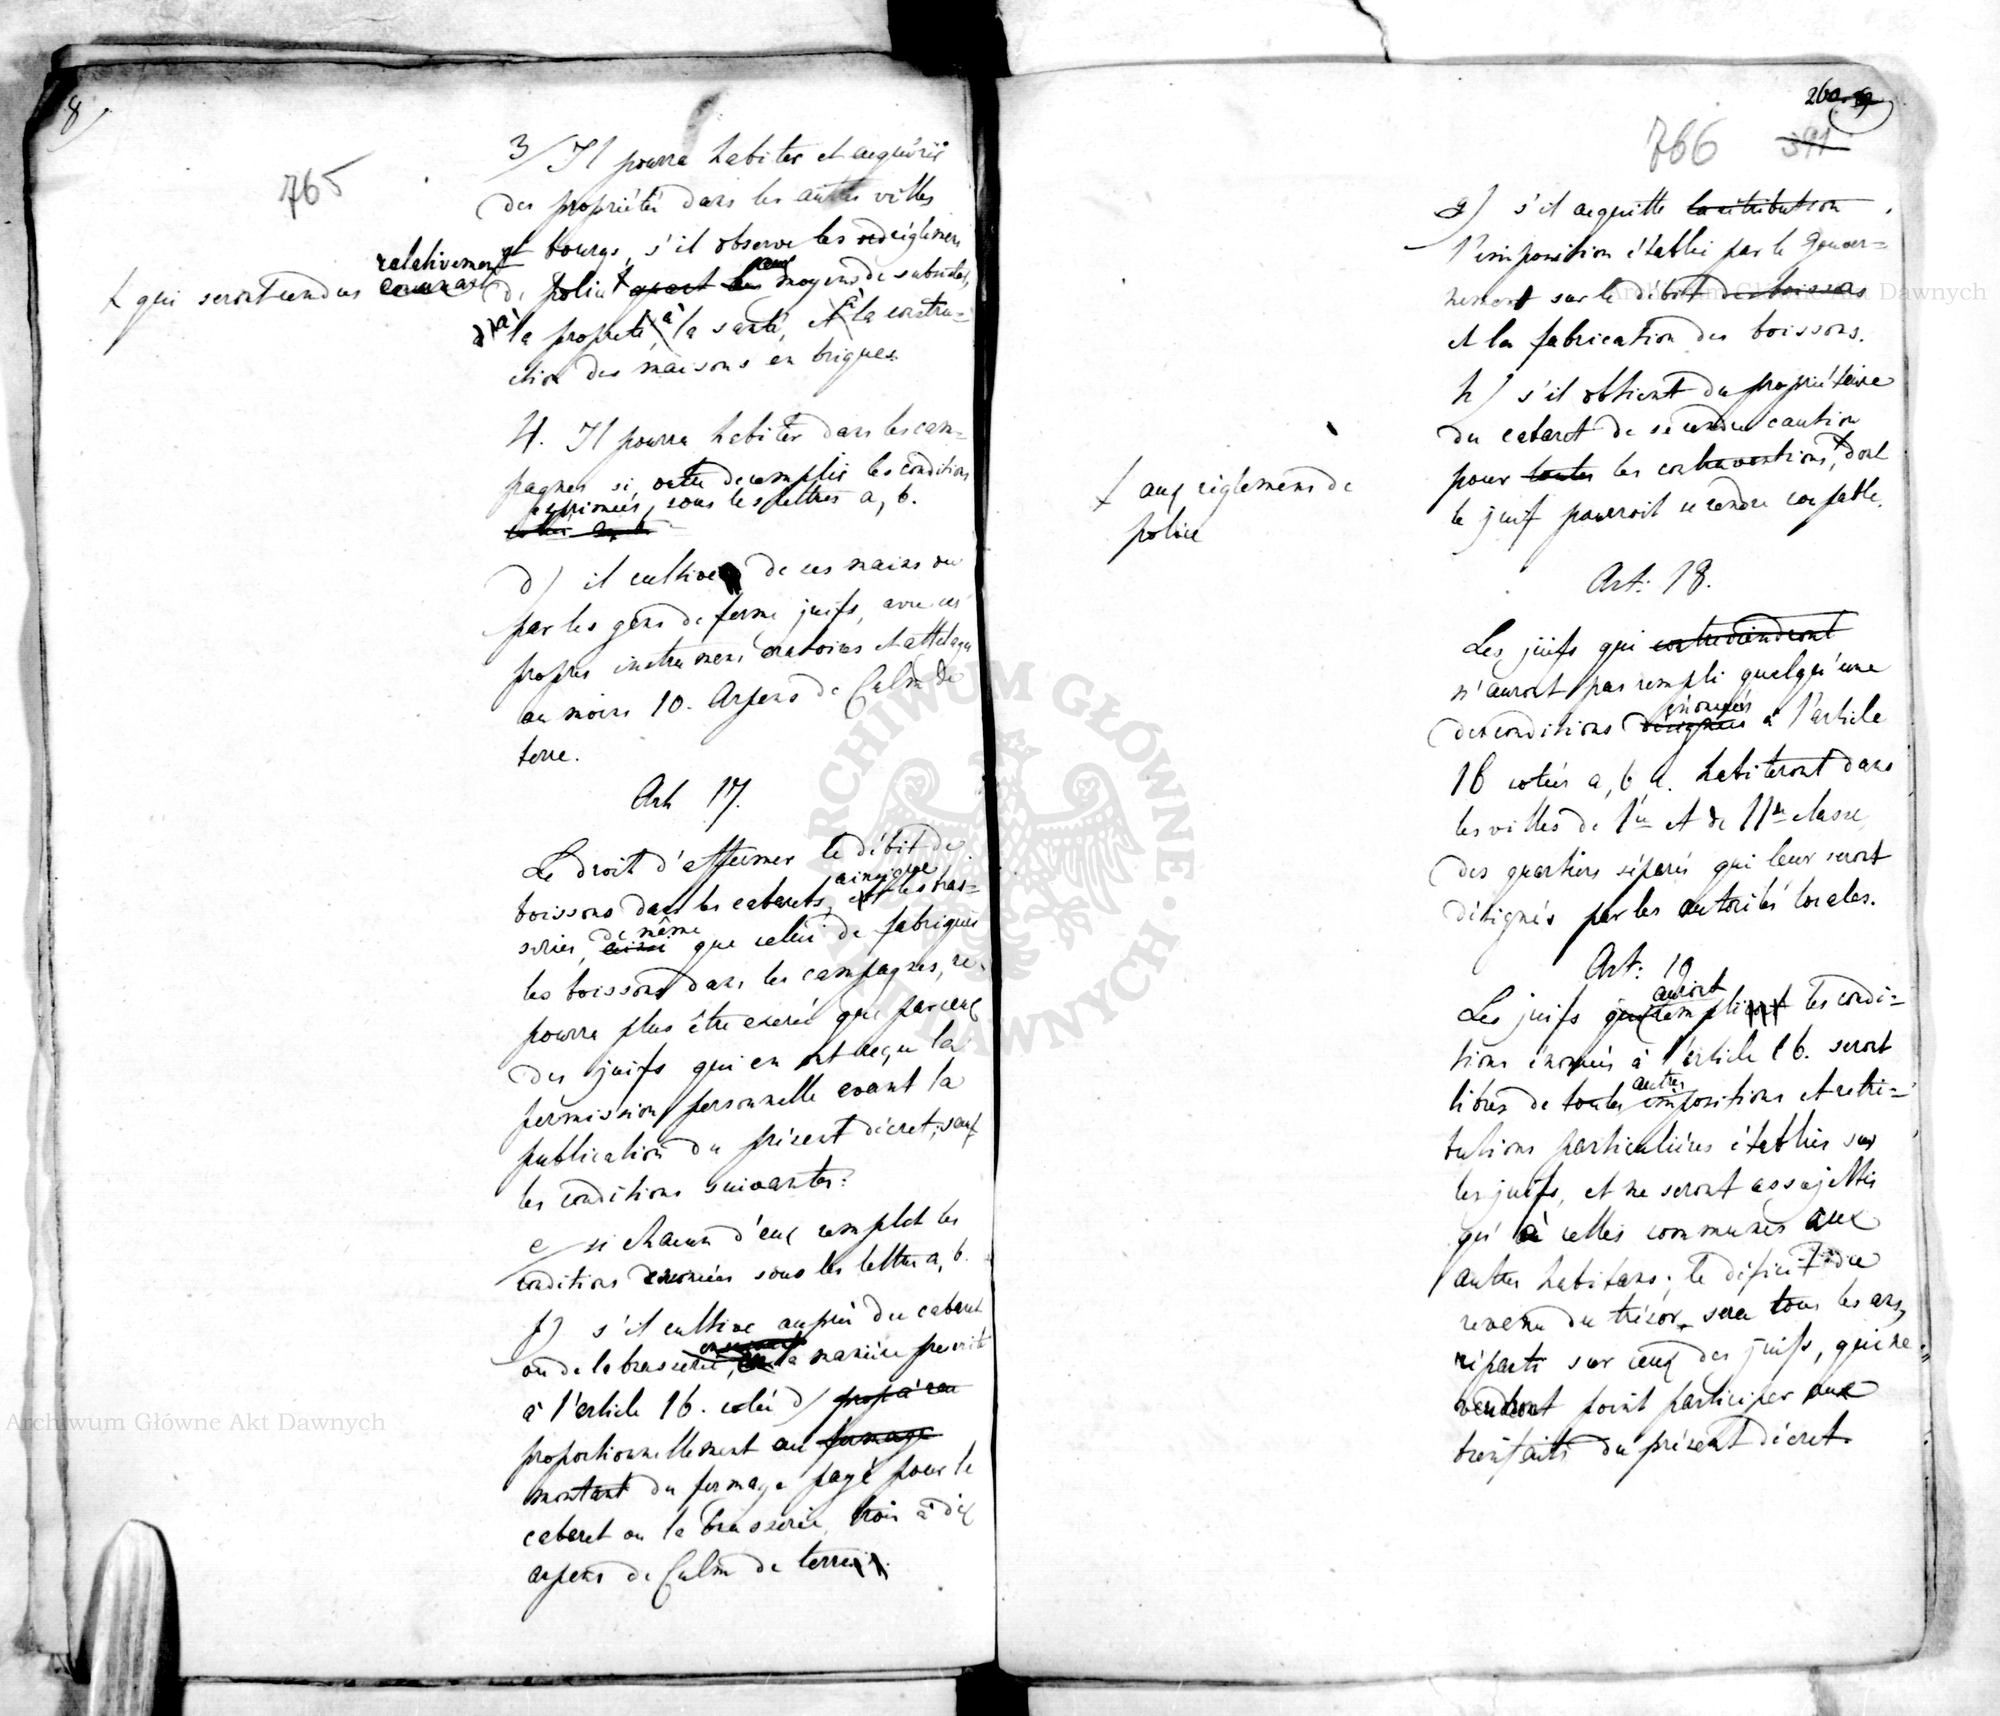 8
765
3/ Il pourra habiter et acquérir
des propriétés dans les autres villes
et bourgs, s'il observe les règlemens
relativement
+ qui seront rendus concernant
de police + ayant les aux moyens de subsister,
à la propreté, à la santé, et à la constru=
ction des maisons en briques.
4. Il pourra habiter dans les cam=
pagnes si outre de remplir les conditions
exprimées, sous les lettres a, b.
d) il cultive de ces mains ou
par les gens de ferme juifs, avec ces
propres instrumens aratoires et attelages
au moins 10. Arpens de Culm de
terre.
Art 17.
Le droit d'affermer le débit de
boissons dans les cabarets, ainsi que et les bras=
series, ainsi de même que celui de fabriquer
les boissons dans les campagnes, ne
pourra plus être exercé que par ceux
des juifs qui en ont reçu la
permission personnelle avant la
publication du présent décret, sauf
les conditions suivantes:
e/ si chacun d'eux remplit les
conditions énoncées sous les lettres a, b.
f) s'il cultive auprès du cabaret
ou de la brasserie, en la manière prescrite
à l'article 16. coté d)
proportionnellement au fermage
montant du fermage payé pour le
cabaret ou la brasserie, trois à dix
arpens de Culm de terre.
260
766 391
g) s'il acquitte la rétribution
l'imposition établie par le Gouver=
nement sur le débit des boissons
et la fabrication des boissons.
h) s'il obtient du propriétaire
du cabaret de se rendre caution
pour toutes les contraventions, + dont
+ aux règlemens de
police
le juif pourroit se rendre coupable.
Art: 18.
Les juifs qui contreviendront
n'auront pas rempli quelqu'une
des conditions désignées énoncées à l'article
16 cotées a, b, d. habiteront dans
les villes de 1re et de IIde classe,
des quartiers séparés qui leur seront
désignés par les autorités locales.
Art: 19
Les juifs qui auront rempliront les condi=
tions énoncées à l'article 16. seront
libres de toutes autres impositions et rétri=
butions particulières établies sur
les juifs, et ne seront assujettis
qu'à celles communes aux
autres habitans; le déficit du
revenu du trésor, sera tous les ans,
réparti sur ceux des juifs, qui ne
voudront point participer aux
bienfaits du présent décret.
Archiwum Główne Akt Dawnych